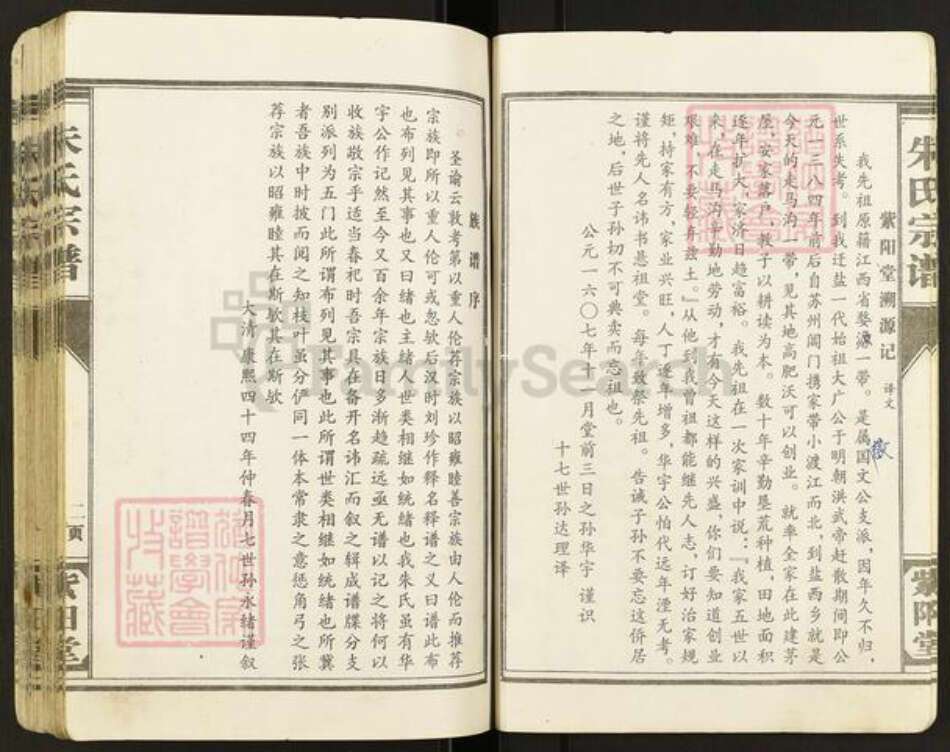 朱氏宗谱
紫阳堂
紫阳堂溯源记 译文
我先祖原籍江西省婺源一带。是属国文公支派，因年久不归，
徽
世系失考。到我迁盐一代始祖大广公于明朝洪武帝赶散期间即公
元一三八四年前后自苏州阊门携家带小渡江而北，到盐西乡就是
今天的走马沟一带，见其地高肥沃可以创业。就率全家在此建茅
屋，安家落户，教子以耕读为本。数十年辛勤垦荒种植，田地面积
逐年扩大，家济日趋富裕。我先祖在一次家训中说：“我家五世以
来，在走马沟辛勤地劳动，才有今天这样的兴盛，你们要知道创业
艰难，不要轻弃兹土。”从他到我曾祖都能继先人志，订好治家规
矩，持家有方，家业兴旺，人丁逐年增多，华宇公怕代远年湮无考。
谨将先人名讳书悬祖堂。每年致祭先祖。告诫子孙不要忘这侨居
之地，后世子孙切不可典卖而忘祖也。
公元一六〇七年十一月堂前三日之孙华宇谨识
十七世孙达理译
族谱序
圣谕云敦考第以重人伦荐宗族以昭雍睦善宗族由人伦而推荐
宗族即所以重人伦可或忽欤后汉时刘珍作释名释谱之义曰谱此布
也布列见其事也又曰绪也主绪人世类相继如统绪也我朱氏虽有华
宇公作记然至今又百余年宗族日多渐趋疏远亟无谱以记之将何以
收族敬宗乎适当春祀时吾宗具在备开名讳汇而叙之辑成谱牒分支
别派列为五门此所谓布列见其事也此所谓世类相继如统绪也所冀
者吾族中时披而阅之知枝叶虽分俨同一体本常隶之意惩角弓之张
荐宗族以昭雍睦其在斯欤其在斯欤
大清康熙四十四年仲春月七世孙永绪谨叙
朱氏宗谱
二页
紫阳堂
FamilySearch